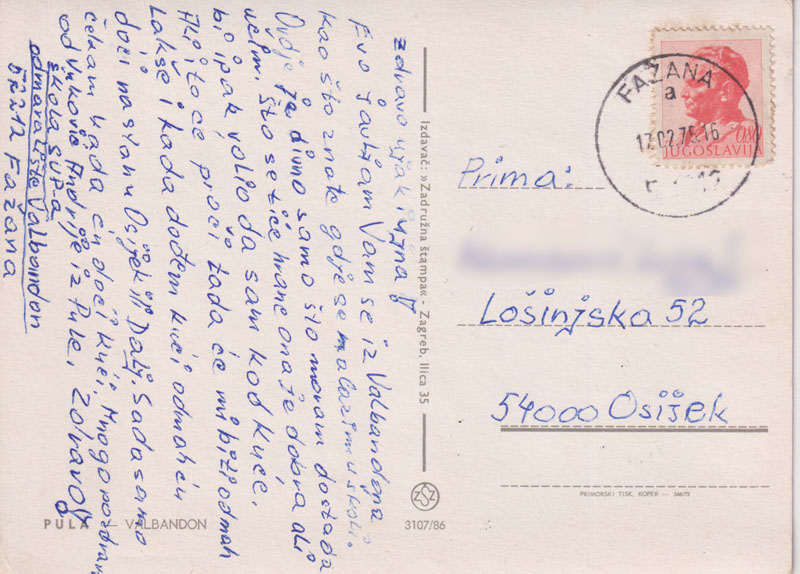 Zdravo ujak i ujna!
Evo javljam Vam se iz Valbandona
kao što znate gdje se nalazim u školi.
Ovdje je divno samo što moram dostada
učim, što se tiče hrane ona je dobra ali
bi ipak volio da sam kod kuće.
Ali to će proći žada će mi biži odmah
Lakše i kada dođem kući odmah ću
doći na stan u Osijek ili Dalj. Sada samo
čekam kada ću doći kući. Mnogo pozdrava
od Vuković Andrije iz Pule, Zdravo!
škola SUP-a
odmaralište Valbandon
52212 Fažana
PULA — VALBANDON
Izdavač: »Zadružna štampa« - Zagreb, Ilica 35
ZSZ
3107/86
FAŽANA
a
17.02.75.16
0.80
JUGOSLAVIJA
Prima:
Lošinjska 52
54000 Osijek
PRIMORSKI TISK, KOPER — 346/73